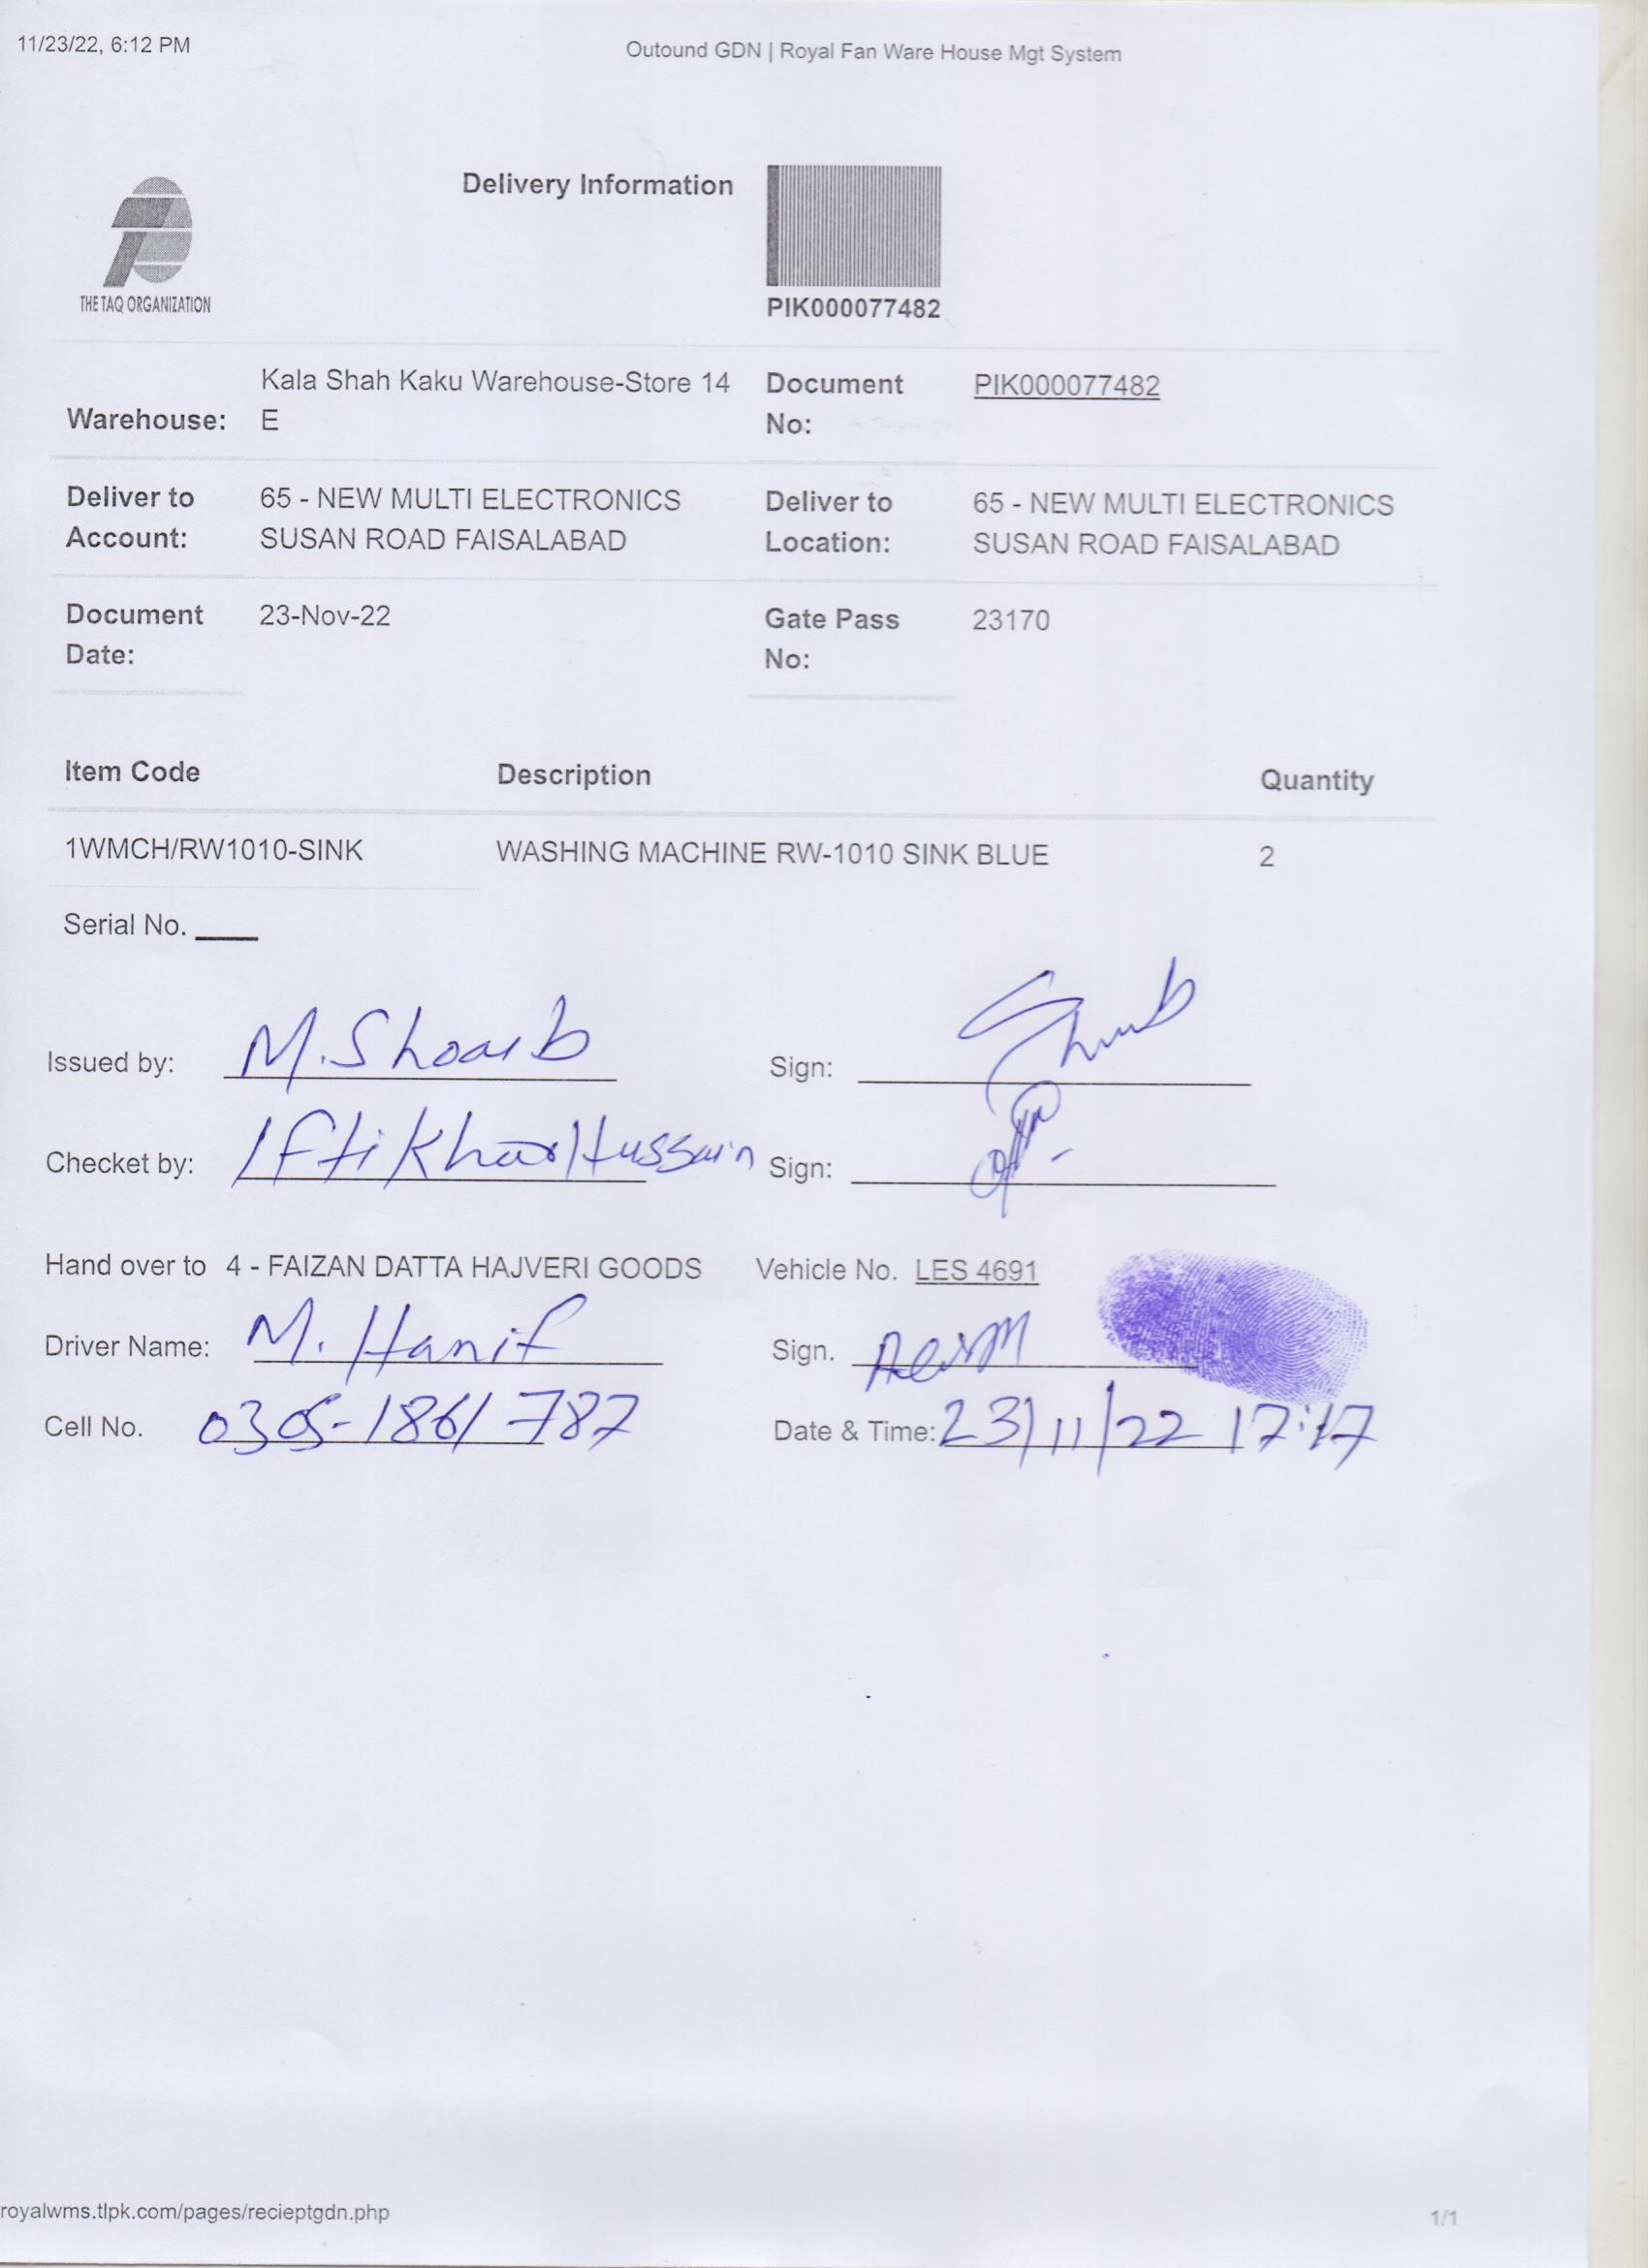 11/23/22, 6:12 PM
Outound GDN | Royal Fan Ware House Mgt System
Delivery Information
THE TAQ ORGANIZATION
PIK000077482
Warehouse: Kala Shah Kaku Warehouse-Store 14 E
Document No: PIK000077482
Deliver to Account: 65 - NEW MULTI ELECTRONICS SUSAN ROAD FAISALABAD
Deliver to Location: 65 - NEW MULTI ELECTRONICS SUSAN ROAD FAISALABAD
Document Date: 23-Nov-22
Gate Pass No: 23170
Item Code Description Quantity
1WMCH/RW1010-SINK WASHING MACHINE RW-1010 SINK BLUE 2
Serial No.
Issued by: M. Shoaib Sign:
Checket by: Iftikhar Hussain Sign:
Hand over to 4 - FAIZAN DATTA HAJVERI GOODS Vehicle No. LES 4691
Driver Name: M. Hanif Sign.
Cell No. 0305-1861787 Date & Time: 23/11/22 17:17
royalwms.tlpk.com/pages/recieptgdn.php
1/1